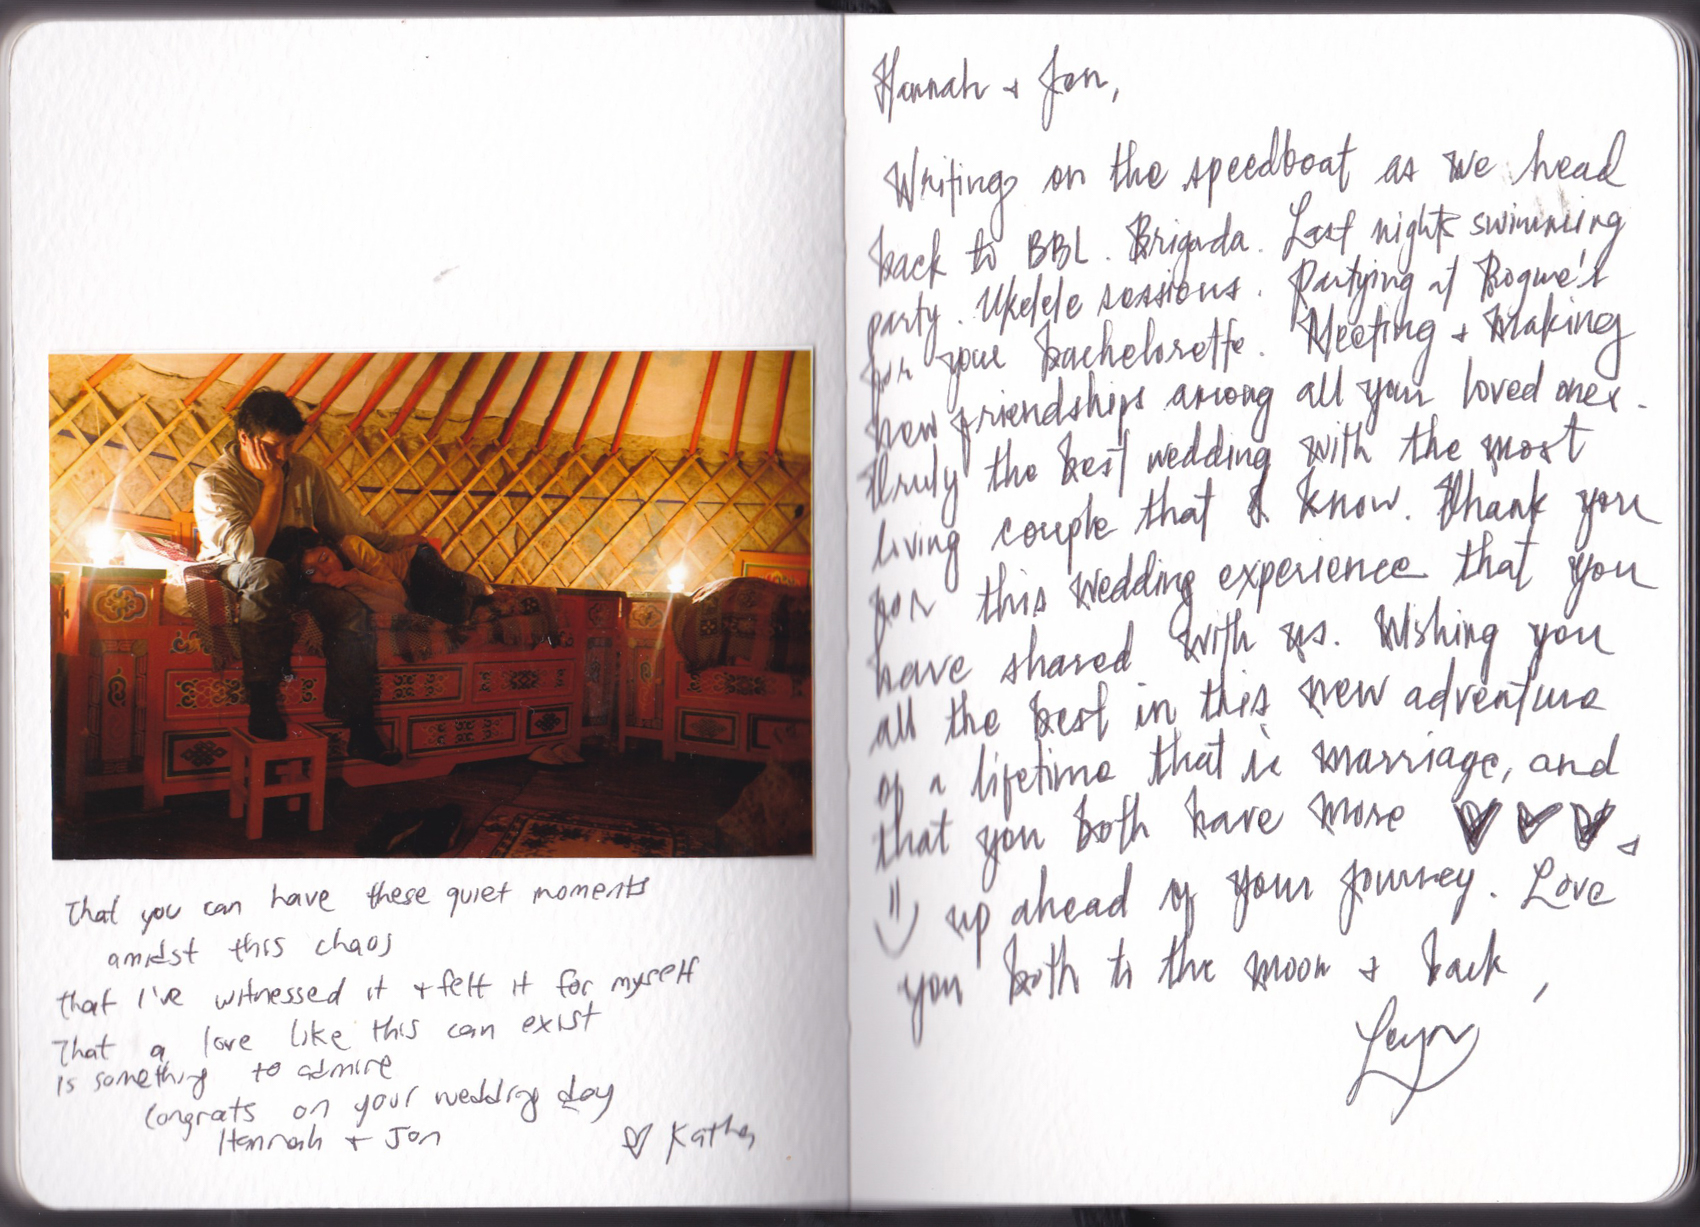 That you can have these quiet moments
amidst this chaos
that I've witnessed it + felt it for myself
That a love like this can exist
is something to admire
congrats on your wedding day
Hannah + Jon
♡ Kathy
Hannah + Jon,
Writing on the speedboat as we head
back to BBL. Brigada. Last night's swimming
party. Ukelele sessions. Partying at Rogue's
for your bachelorette. Meeting + making
new friendships among all your loved ones.
truly the best wedding with the most
living couple that I know. Thank you
for this wedding experience that you
have shared with us. Wishing you
all the best in this new adventure
of a lifetime that is marriage, and
that you both have more ♥ ♥ ♥
up ahead of your journey. Love
you both to the moon + back,